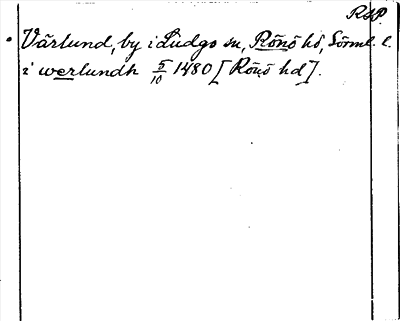 RAP.
Värlund, by i Ludgo sn, Rönö hd, Sörml. l.
i werlundh 5/10 1480 [Rönö hd].